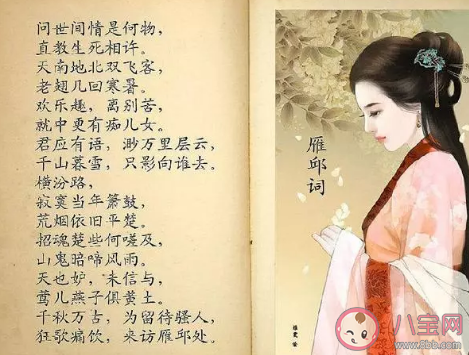 问世间情是何物，
直教生死相许。
天南地北双飞客，
老翅几回寒暑。
欢乐趣，离别苦，
就中更有痴儿女。
君应有语，渺万里层云，
千山暮雪，只影向谁去。
横汾路，
寂寞当年箫鼓，
荒烟依旧平楚。
招魂楚些何嗟及，
山鬼暗啼风雨。
天也妒，未信与，
莺儿燕子俱黄土。
千秋万古，为留待骚人，
狂歌痛饮，来访雁邱处。
雁邱词
八宝网
www.8bb.com